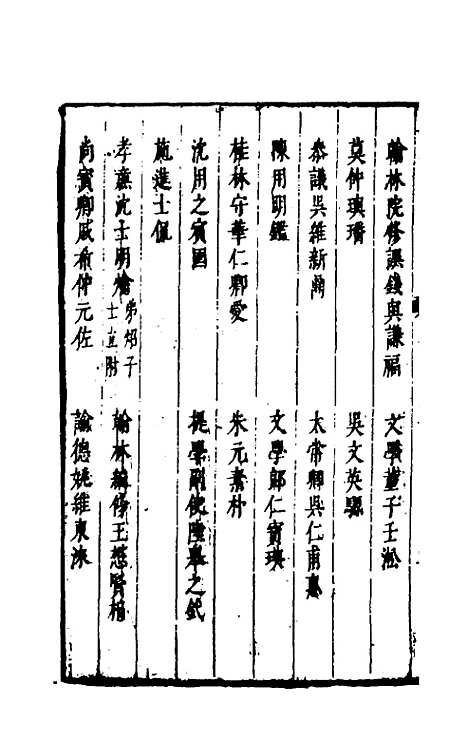 翰林院修譔錢與謙福　文學董子壬淞
莫仲璵瑨　吳文英驥
叅議吳維新鼐　太常卿吳仁甫惠
陳用明鑑　文學郎仁寶瑛
桂林守華仁卿愛　朱元素朴
沈用之賓國　提學副使陸舉之釴
施進士侃
孝廉沈士明爚弟炤子士直附　翰林編修王懋賢梅
尚寳卿戚希仲元佐　諭德姚維東淶